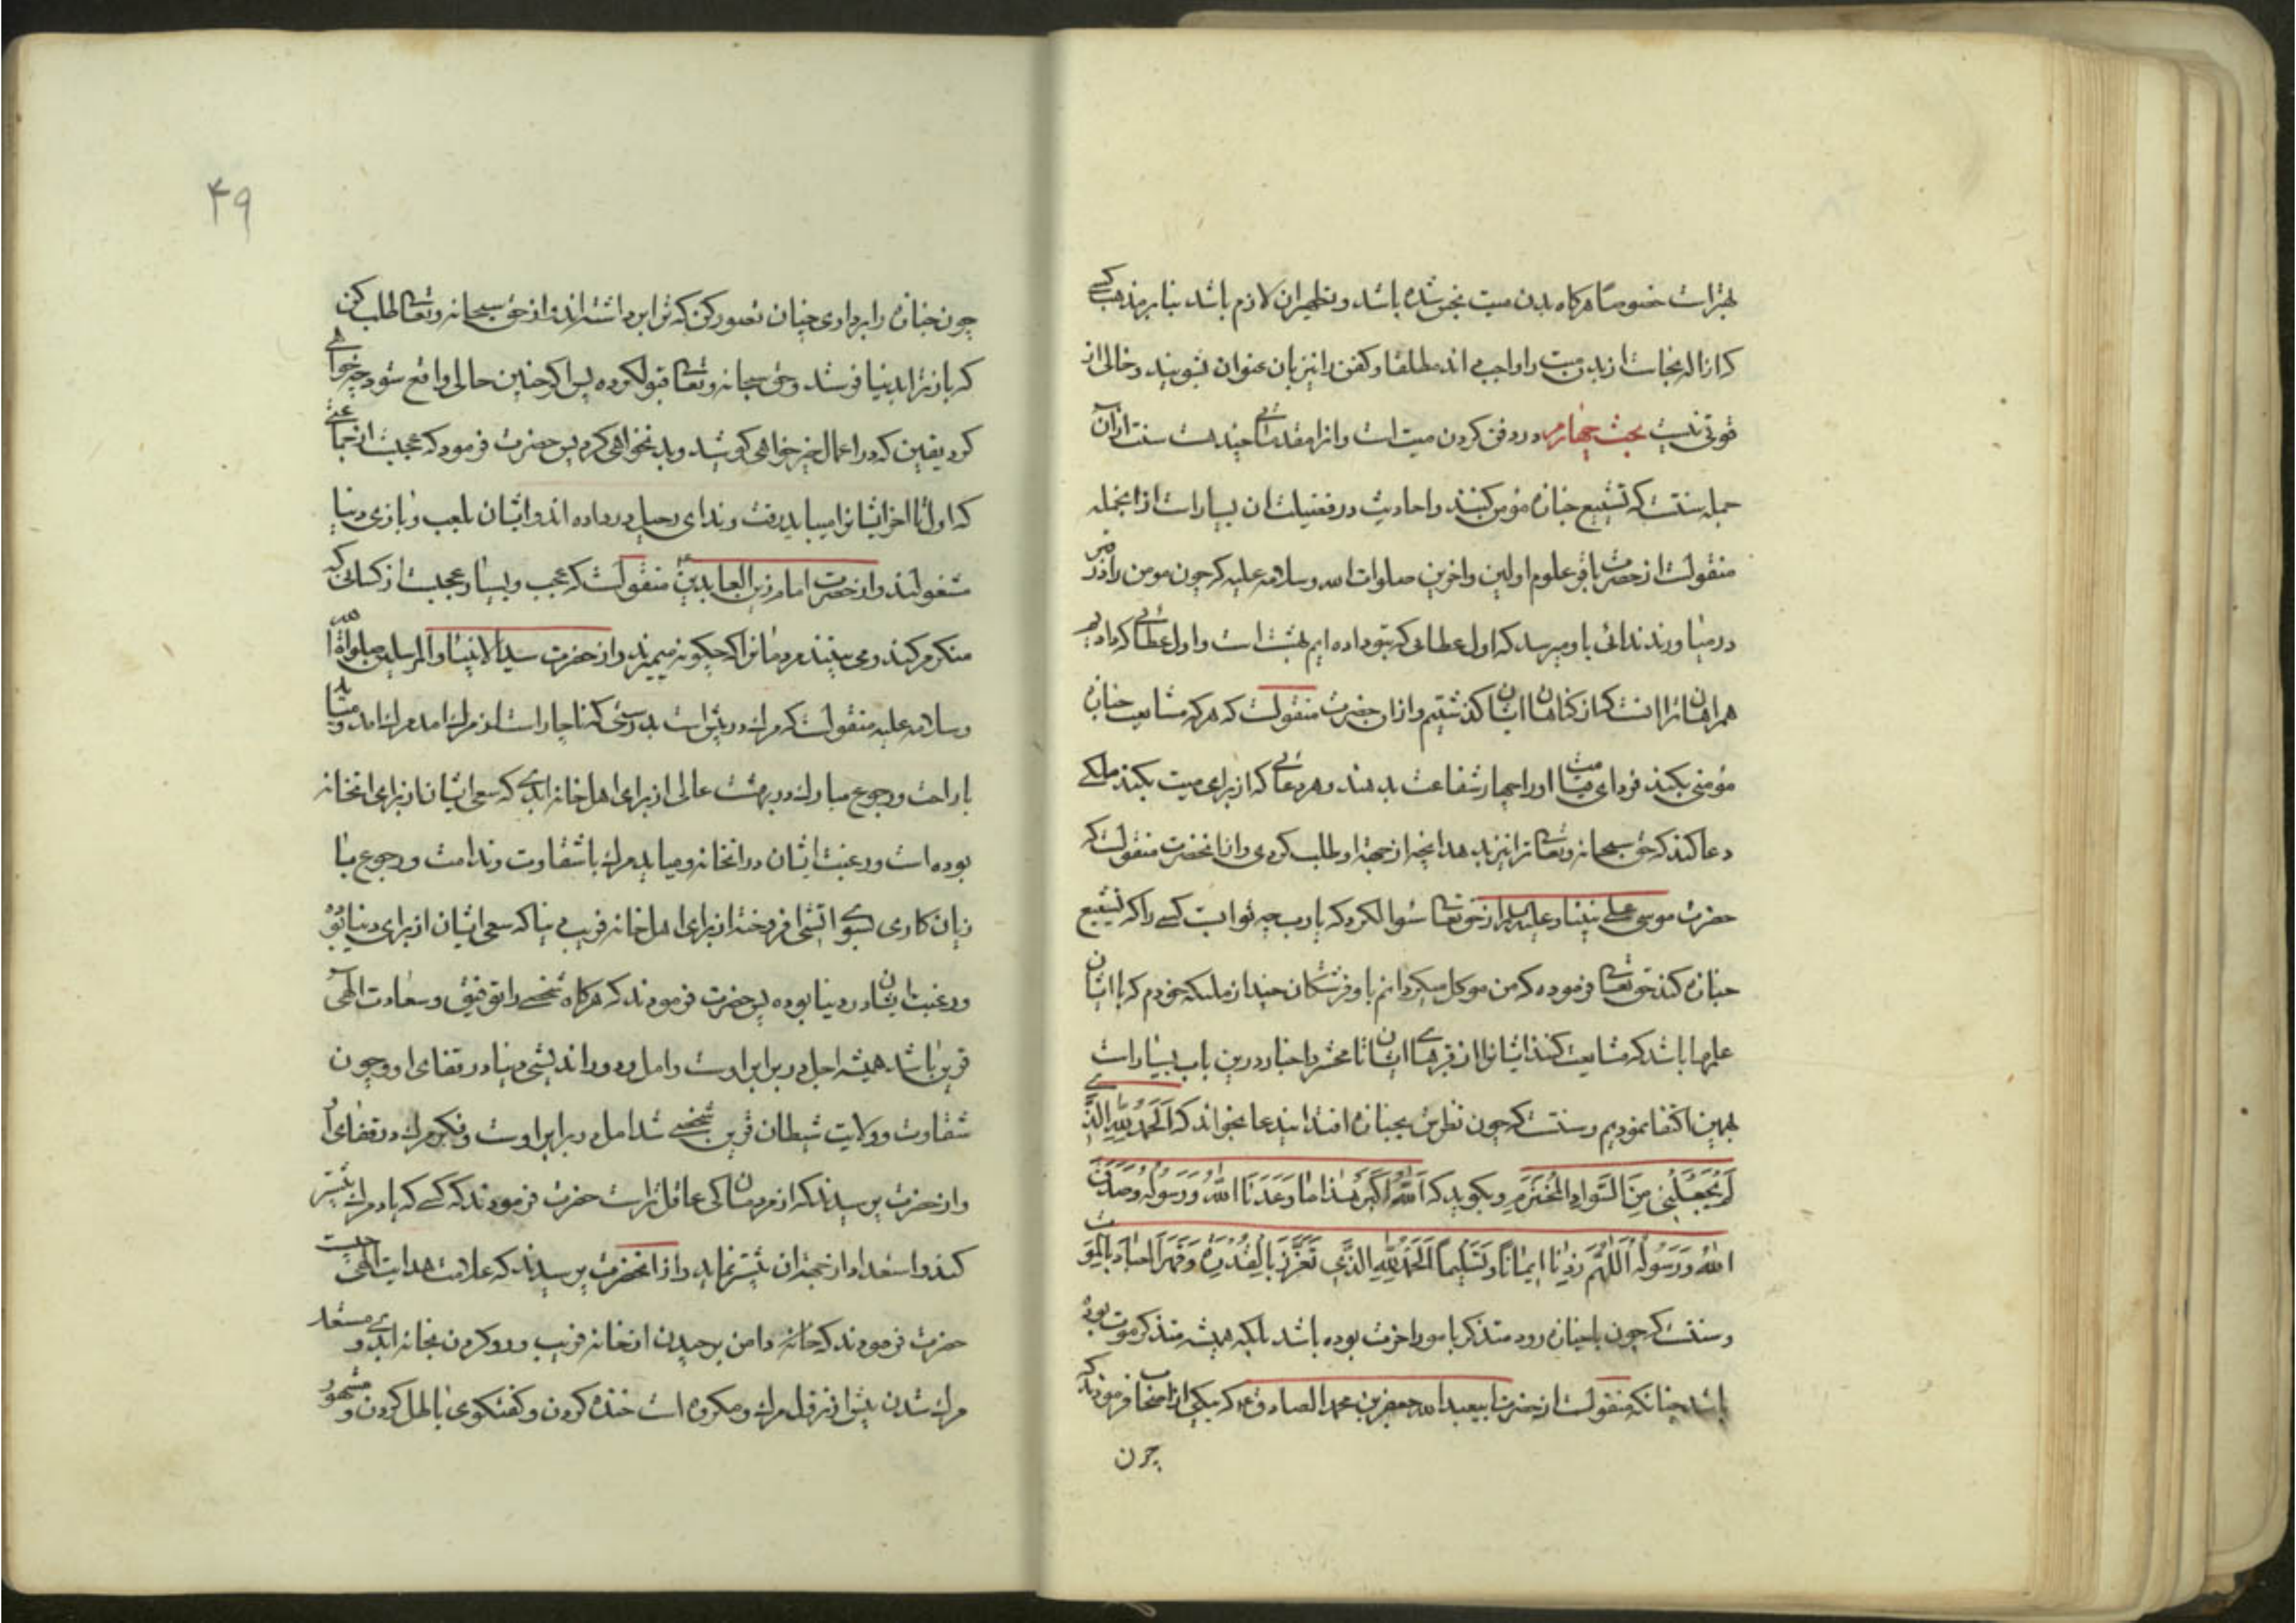 بهتراست خصوصا هرکاه بدن میت نجس شده باشد و تطهیر ان لازم باشد بنابر مذهب کسے
که ازاله نجاست از بدن میت را واجب می‌اند مطلقا و کفن را نیز بان عنوان بشویند و خالی از
قوتی نیست بحث چهارم در دفن کردن میت است و انرا مقدماتی چند هست سنت ازان
جمله سنتست که تشییع جنازه مؤمن کنند و احادیث در فضیلت ان بسیار است از انجمله
منقولست از حضرت باقر علوم اولین و اخرین صلوات الله و سلامه علیه که چون مومن را در قبر
در میاورند ندائی باو میرسد که اول عطائی که بتو داده ایم بهشت است و اول عطائی که دادیم
همراهان ترا انست که از کناهان ایشان کذشتیم و از ان حضرت منقولست که هر که مشایعت جنازه
مؤمنی بکند فردای قیامت او را چهار شفاعت بدهند و هر دعائی که از برای میت بکند ملکے
دعا کند که حق سبحانه و تعالی ترا نیز بدهد انچه از جهة او طلب کردی و از انحضرت منقولست که
حضرت موسی علی نبینا و علیه السلام از حق تعالی سوال کرد که یا رب چه ثوابست کسے را که تشییع
جنازه کند حق تعالی فرموده که من موکل میکردانم باو فرشتکان چند از ملیکه خودم که با ایشان
علمها باشد که مشایعت کنند ایشانرا از قبرهای ایشان تا محشر و اخبار درین باب بسیار است
بهمین اکتفا نمودیم و سنتست که چون نظرش بجنازه افتد ایندعا بخواند که اَلْحَمْدُ لِلّٰهِ الَّذی
لَمْ یَجْعَلْنِی مِنَ السَّوادِ الْمُخْتَرَمِ و بکوید که اَللّٰهُ اَکْبَرُ هٰذا ما وَعَدَنَا اللّٰهُ وَ رَسُولُه وَ صَدَقَ
اللّٰهُ وَ رَسُولُهُ اَللّٰهُمَّ زِدْنا ایمانًا وَ تَسْلیمًا اَلْحَمْدُ لِلّٰهِ الَّذی تَعَزَّزَ بِالْقُدْرَةِ وَ قَهَرَ الْعِبادَ بِالْمَوْتِ
و سنتست که چون با جنازه رود متذکر بامور اخرت بوده باشد بلکه همیشه متذکر موت بوده
باشد چنانکه منقولست از حضرت ابیعبدالله جعفر بن محمد الصادق ع که بیکی از اصحاب فرمودند که
چون
۴۹
چون جنازه را برداری چنان تصور کن که ترا برداشته اند و از حق سبحانه و تعالی طلب کن
که باز ترا بدنیا فرستد و حق سبحانه و تعالی قبول کرده پس اکر چنین حالی واقع شود چه خواهی
کرد یقین که در اعمال خیر خواهی کوشید و بد نخواهی کرد پس حضرت فرمود که عجبست از جماعتی
که اول تا اخر ایشانرا میباید رفت و ندای رحیل در داده اند و ایشان بلعب و بازی دنیا
مشغولند و از حضرت امام زین العابدین ع منقولست که عجب و بسیار عجبست از کسانی که
منکر مرکند و می بینند مردمانرا که چکونه میمیرند و از حضرت سید الانبیا و المرسلین صلواة الله
و سلامه علیه منقولست که مرک در پیش است بدرستی که ناچار است از مرک امد مرک امد و میاید
با راحت و رجوع مبارک در بهشت عالی از برای اهل خانه ابدی که سعی ایشان از برای انخانه
بوده است و رغبت ایشان در انخانه و میاید مرک با شقاوت و ندامت و رجوع با
زیان کاری بسوی اتشی افروخته از برای اهل خانه فریب دنیا که سعی ایشان از برای دنیا بوده
و رغبت ایشان در دنیا بوده پس حضرت فرمودند که هرکاه شخصے را توفیق و سعادت الهی
قرین باشد همیشه اجل در برابر اوست و امل و دور اندیشی دنیا در قفای او و چون
شقاوت و ولایت شیطان قرین شخصے شد امل در برابر اوست و فکر مرک در قفای او
و از حضرت پرسیدند که از مردمان کی عاقل تر است حضرت فرمودند که کسے که یاد مرک بیشتر
کند و استعداد از جهة ان بیشتر نماید و از انحضرت پرسیدند که علامت هدایت الهی چیست
حضرت فرمودند که دامن برچیدن از خانه فریب و رو کردن بخانه ابدی و مستعد
مرک شدن پیش از نزول مرک و مکروه است خنده کردن و کفتکوی باطل کردن و مشهور